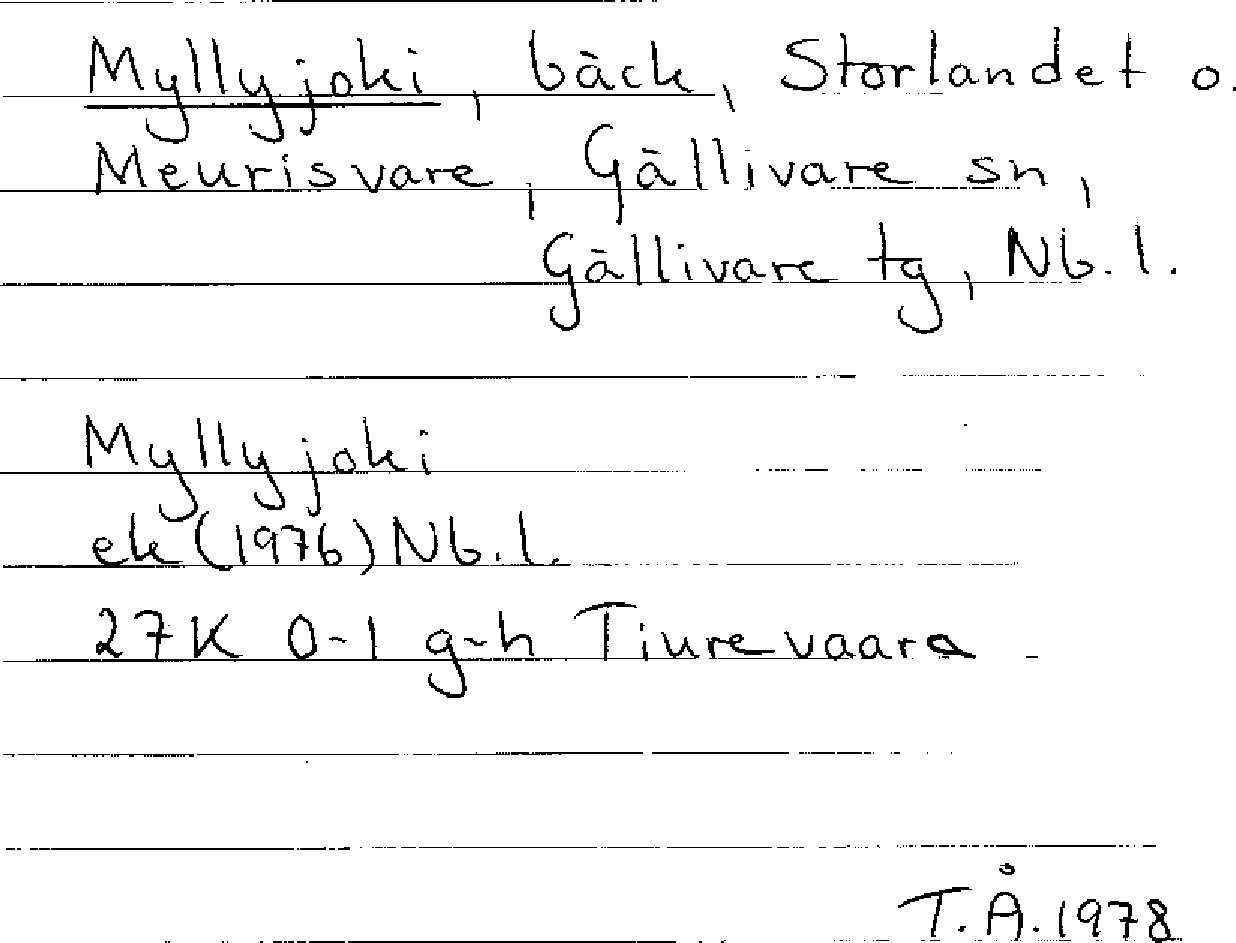 Myllyjoki, bäck, Storlandet o.
Meurisvare, Gällivare sn,
Gällivare tg, Nb. l.
Myllyjoki
ek (1976) Nb. l.
27K 0-1 g-h Tiurevaara
T. Å. 1978